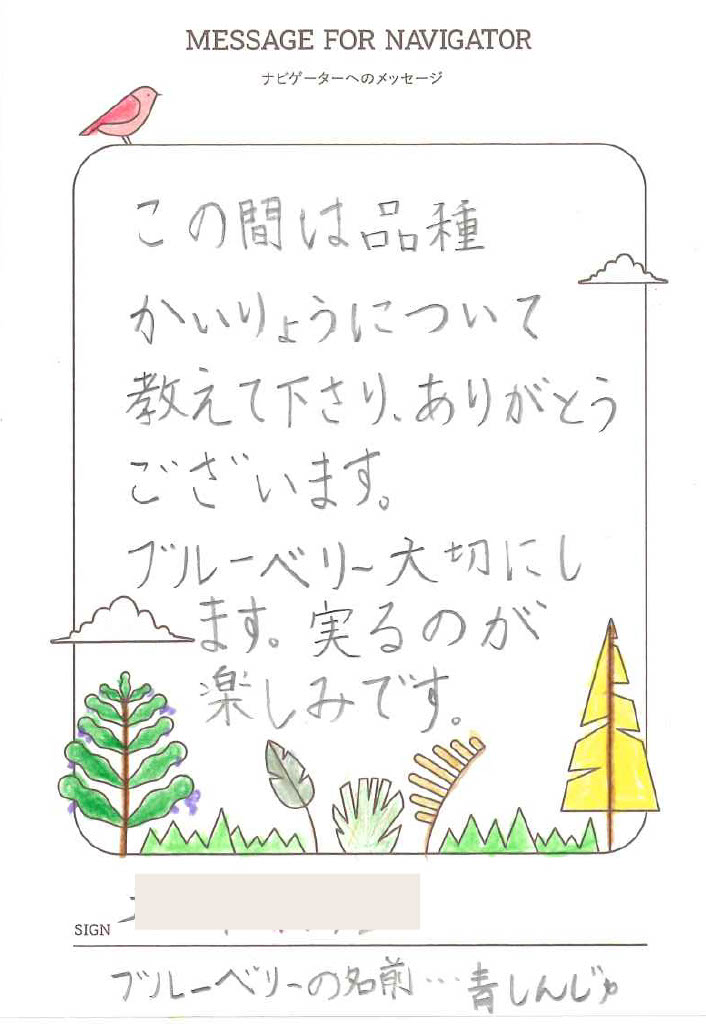 MESSAGE FOR NAVIGATOR
ナビゲーターへのメッセージ
この間は品種
かいりょうについて
教えて下さり、ありがとう
ございます。
ブルーベリー大切にし
ます。実るのが
楽しみです。
SIGN
ブルーベリーの名前…青しんじゅ